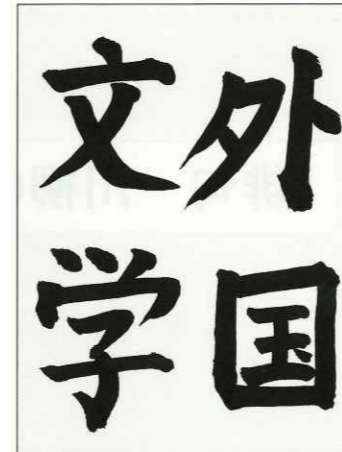 外国
文学